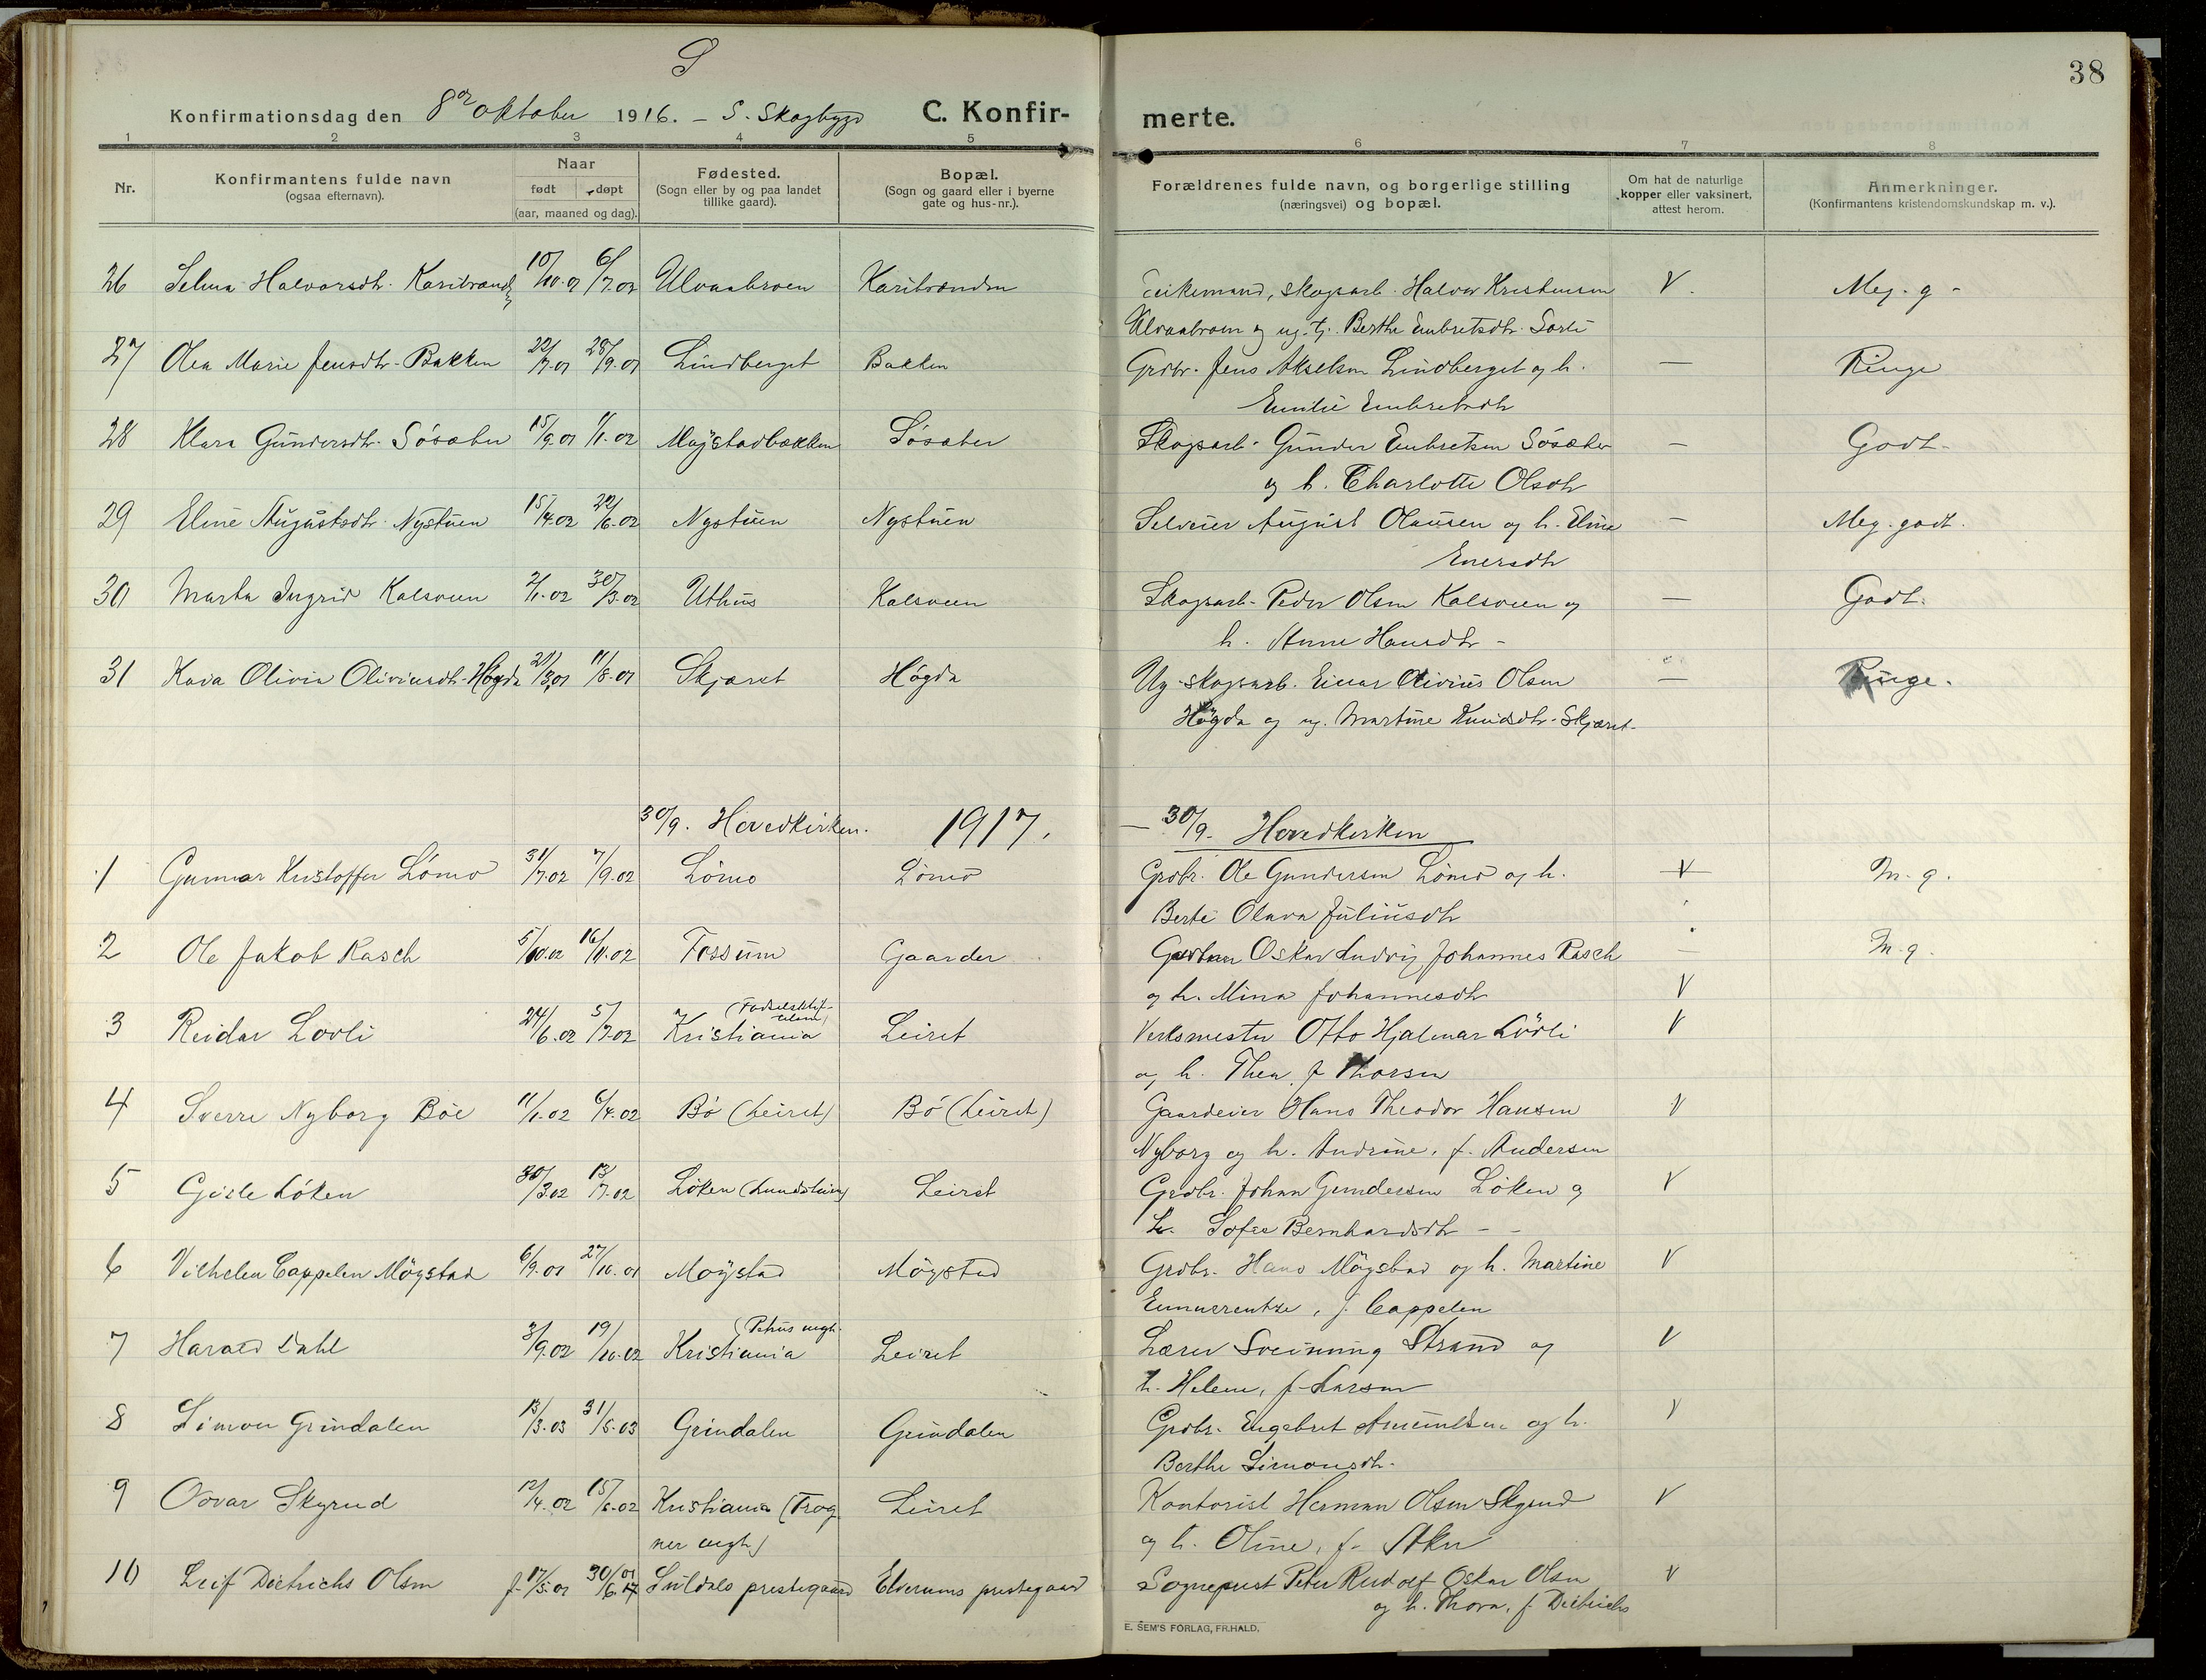 S
38
Konfirmationsdag den 8de oktober 1916. - S. Skogbygd C. Konfir- merte.
1 2 3 4 5 6 7 8
Nr.
Konfirmantens fulde navn
(ogsaa efternavn).
Naar
født døpt
(aar, maaned og dag).
Fødested.
(Sogn eller by og paa landet
tillike gaard).
Bopæl.
(Sogn og gaard eller i byerne
gate og hus-nr.).
Forældrenes fulde navn, og borgerlige stilling
(næringsvei) og bopæl.
Om hat de naturlige
kopper eller vaksinert,
attest herom.
Anmerkninger.
(Konfirmantens kristendomskundskap m. v.).
26 Selma Halvorsdtr. 10/10.01 6/7.02 Ulvaabroen Karibranden Enkemand, skogsarb. Halvor Kristensen V. Meg. g -
Ulvaabroen og ug. tj. Berthe Embretsdtr. Sorli
27 Olea Marie Jensdtr. Bakken 22/7.01 28/9.01 Lindberget Bakken Grdbr. Jens Akselsen Lindberget og h. — Ringe
Emilie Embretsdtr
28 Klara Gundersdtr. Søsæter 15/9.01 1/1.02 Møystadbakken Søsæter Skogsarb. Gunder Embretsen Søsæter - Godt-
og h. Charlotte Olsdtr
29 Eline Augustsdtr. Nystuen 15/4.02 22/6.02 Nystuen Nystuen Selveier August Olausen og h. Elina - Meg. godt.
Enersdtr
30 Marta Ingrid Kalsveen 2/1.02 30/3.02 Uthus Kalsveen Skogsarb. Peder Olsen Kalsveen og — Godt.
h. Anne Hansdtr -
31 Kava Olivia Oliviusdtr. Høgda 21/3.01 11/8.01 Skjæret Høgda Ug. skogsarb. Einar Olivius Olsen — Ringe.
Høgda og ug. Martine Knudsdtr. Skjæret-
30/9. Hovedkirken. 1917. — 30/9. Hovedkirken
1 Gunnar Kristoffer Lømo 31/7.02 7/9.02 Lømo Lømo Grdbr. Ole Gundersen Lømo og h. V M. g.
Berte Olava Juliusdtr
2 Ole Jakob Rasch 5/10.02 16/11.02 Fossum Gaarder Gartner Oskar Ludvig Johannes Rasch — M. g.
og h. Mina Johannesdtr V
3 Reidar Lövli 24/6.02 5/7.02 Kristiania (Fødselsstif- Leiret Verksmester Otto Hjalmar Lövli V
og h. Thea, f. Thorsen
4 Sverre Nyborg Bøe 11/1.02 6/4.02 Bø (Leiret) Bø (Leiret) Gaardeier Hans Theodor Hansen V
Nyborg og h. Andrine, f. Andersen
5 Gisle Løken 30/3.02 13/7.02 Løken Leiret Grdbr. Johan Gundersen Løken og V
h. Sofie Bernhardsdtr - -
6 Vilhelm Cappelen Møystad 6/9.01 27/10.01 Møystad Møystad Grdbr. Hans Møystad og h. Martine V
Emmerentze, f. Cappelen
7 Harald Dahl 3/9.02 19/10.02 Kristiania (Petrus megh. Leiret Lærer Sveinung Strand og V
h. Helene, f. Larsen
8 Simon Grindalen 13/3.03 31/5.03 Grindalen Grindalen Grdbr. Engebret Amundsen og h. V
Berthe Simonsdtr.
9 Odvar Skyrud 12/4.02 15/6.02 Kristiania (Frog- Leiret Kontorist Herman Olsen Skyrud V
ner megh.) og h. Oline, f. Aker
10 Leif Dietrichs Olsen f. 17/5.01 30/6.01 Suldals prestegaard Elverums prestegaard Sogneprest Peter Rudolf Oskar Olsen V
og h. Thora, f. Dietrichs
E. SEM'S FORLAG, FR.HALD.